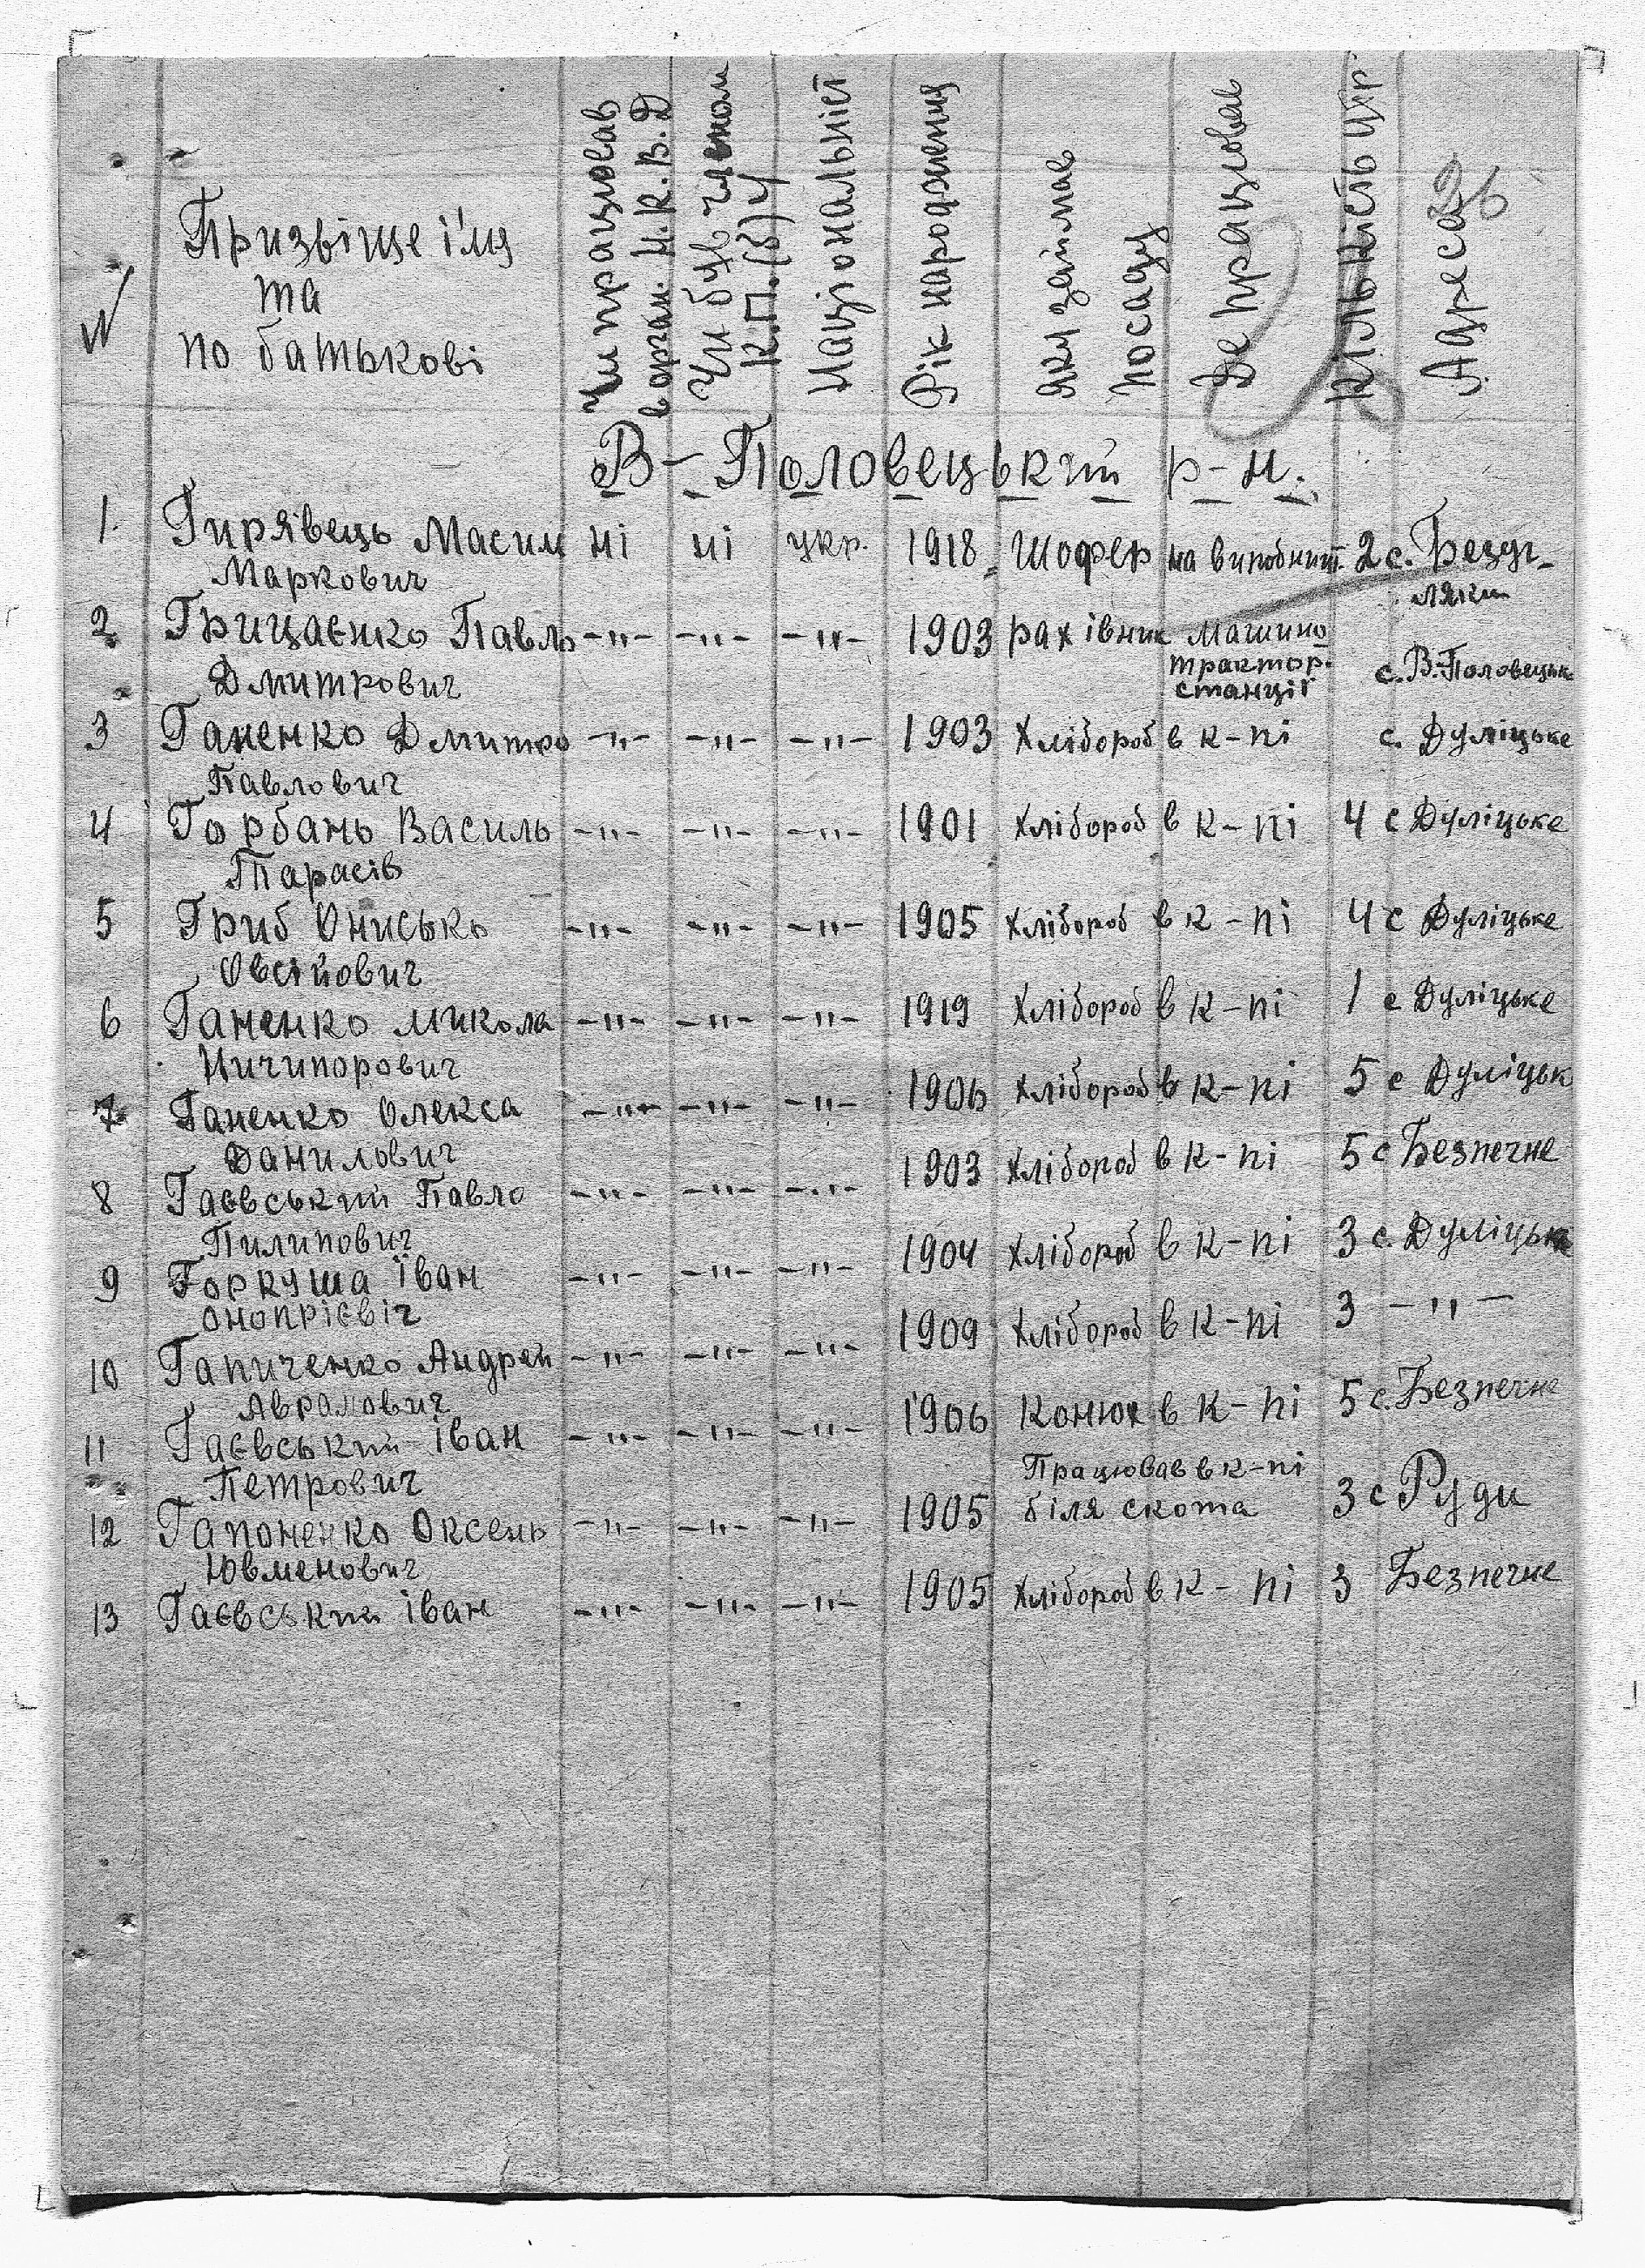 Призвіще і'мя
та
по батькові
Чи працював
в орган. Н.К.В.Д
Чи був членом
К.П.(б)У
Національніст
Рік народження
яку займав
посаду
Де працював
кількість
Адреса
26
В-Половецький р-н.
1. Гирявець Масим ні ні укр. 1918 Шофер на виробницт. 2 с. Безуг-
Маркович ляки
2 Грицаєнко Павло -"- -"- -"- 1903 рахівник Машино
трактор.
Дмитрович станції с. В-Половецьке
3 Ганенко Дмитро -"- -"- -"- 1903 Хлібороб в к-пі с. Дуліцьке
Павлович
4 Горбань Василь -"- -"- -"- 1901 Хлібороб в к-пі 4 с Дуліцьке
Тарасів
5 Гриб Онисько -"- -"- -"- 1905 Хлібороб в к-пі 4 с Дуліцьке
Овсійович
6 Ганенко Микола -"- -"- -"- 1919 Хлібороб в к-пі 1 с Дуліцьке
Ничипорович
7 Ганенко Олекса -"- -"- -"- 1906 Хлібороб в к-пі 5 с Дуліцьк
Данильович
8 Гаєвський Павло -"- -"- -"- 1903 Хлібороб в к-пі 5 с Безпечне
Пилипович
9 Горкуша Іван -"- -"- -"- 1904 Хлібороб в к-пі 3 с. Дуліцьке
Онопрієвіч
10 Гапиченко Андрей -"- -"- -"- 1909 Хлібороб в к-пі 3 -"-
Аврамович
11 Гаєвський Іван -"- -"- -"- 1906 Конюх в к-пі 5 с. Безпечне
Петрович
Працював в к-пі
12 Гапоненко Оксень -"- -"- -"- 1905 біля скота 3 с Руди
Ювменович
13 Гаєвський Іван -"- -"- -"- 1905 Хлібороб в к-пі 3 Безпечне